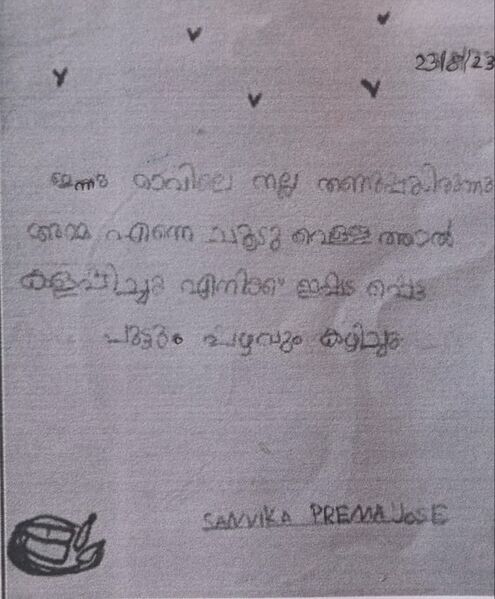 23/8/23
ഇന്നു രാവിലെ നല്ല തണുപ്പായിരുന്നു
അമ്മ എന്നെ ചൂടു വെള്ളത്താൽ
കുളിപ്പിച്ചു എനിക്ക് ഇഷ്ട പ്പെട്ട
പുട്ടും പഴവും കഴിച്ചു
SANVIKA PREMA JOSE